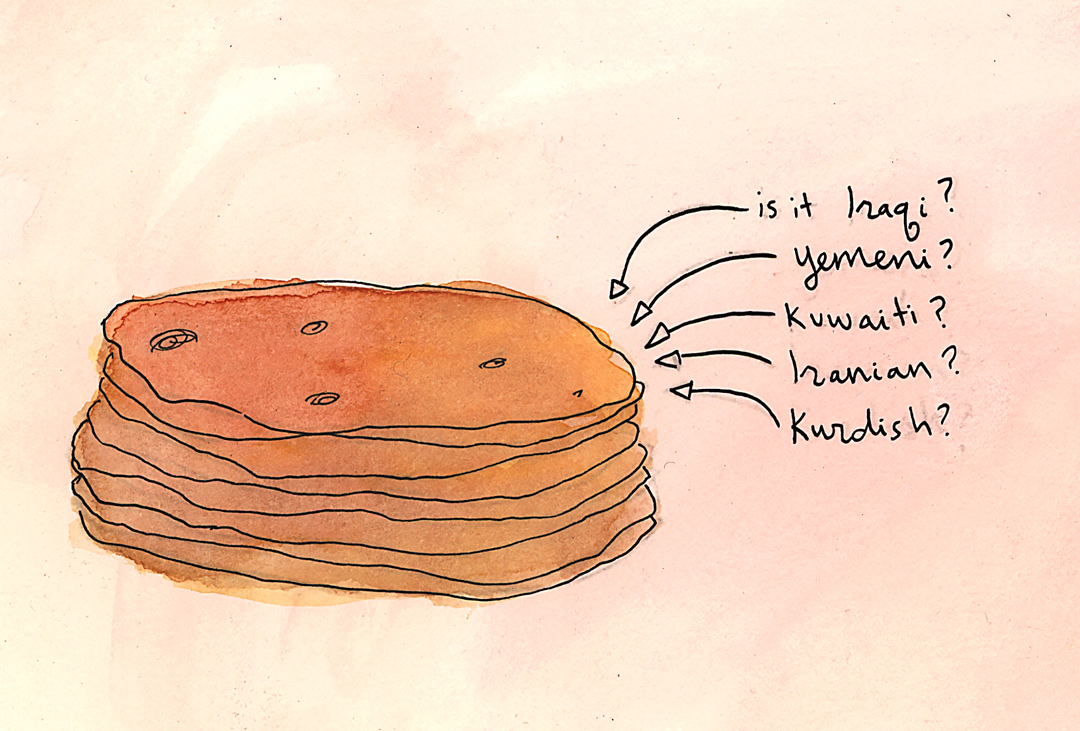 is it Iraqi?
Yemeni?
Kuwaiti?
Iranian?
Kurdish?